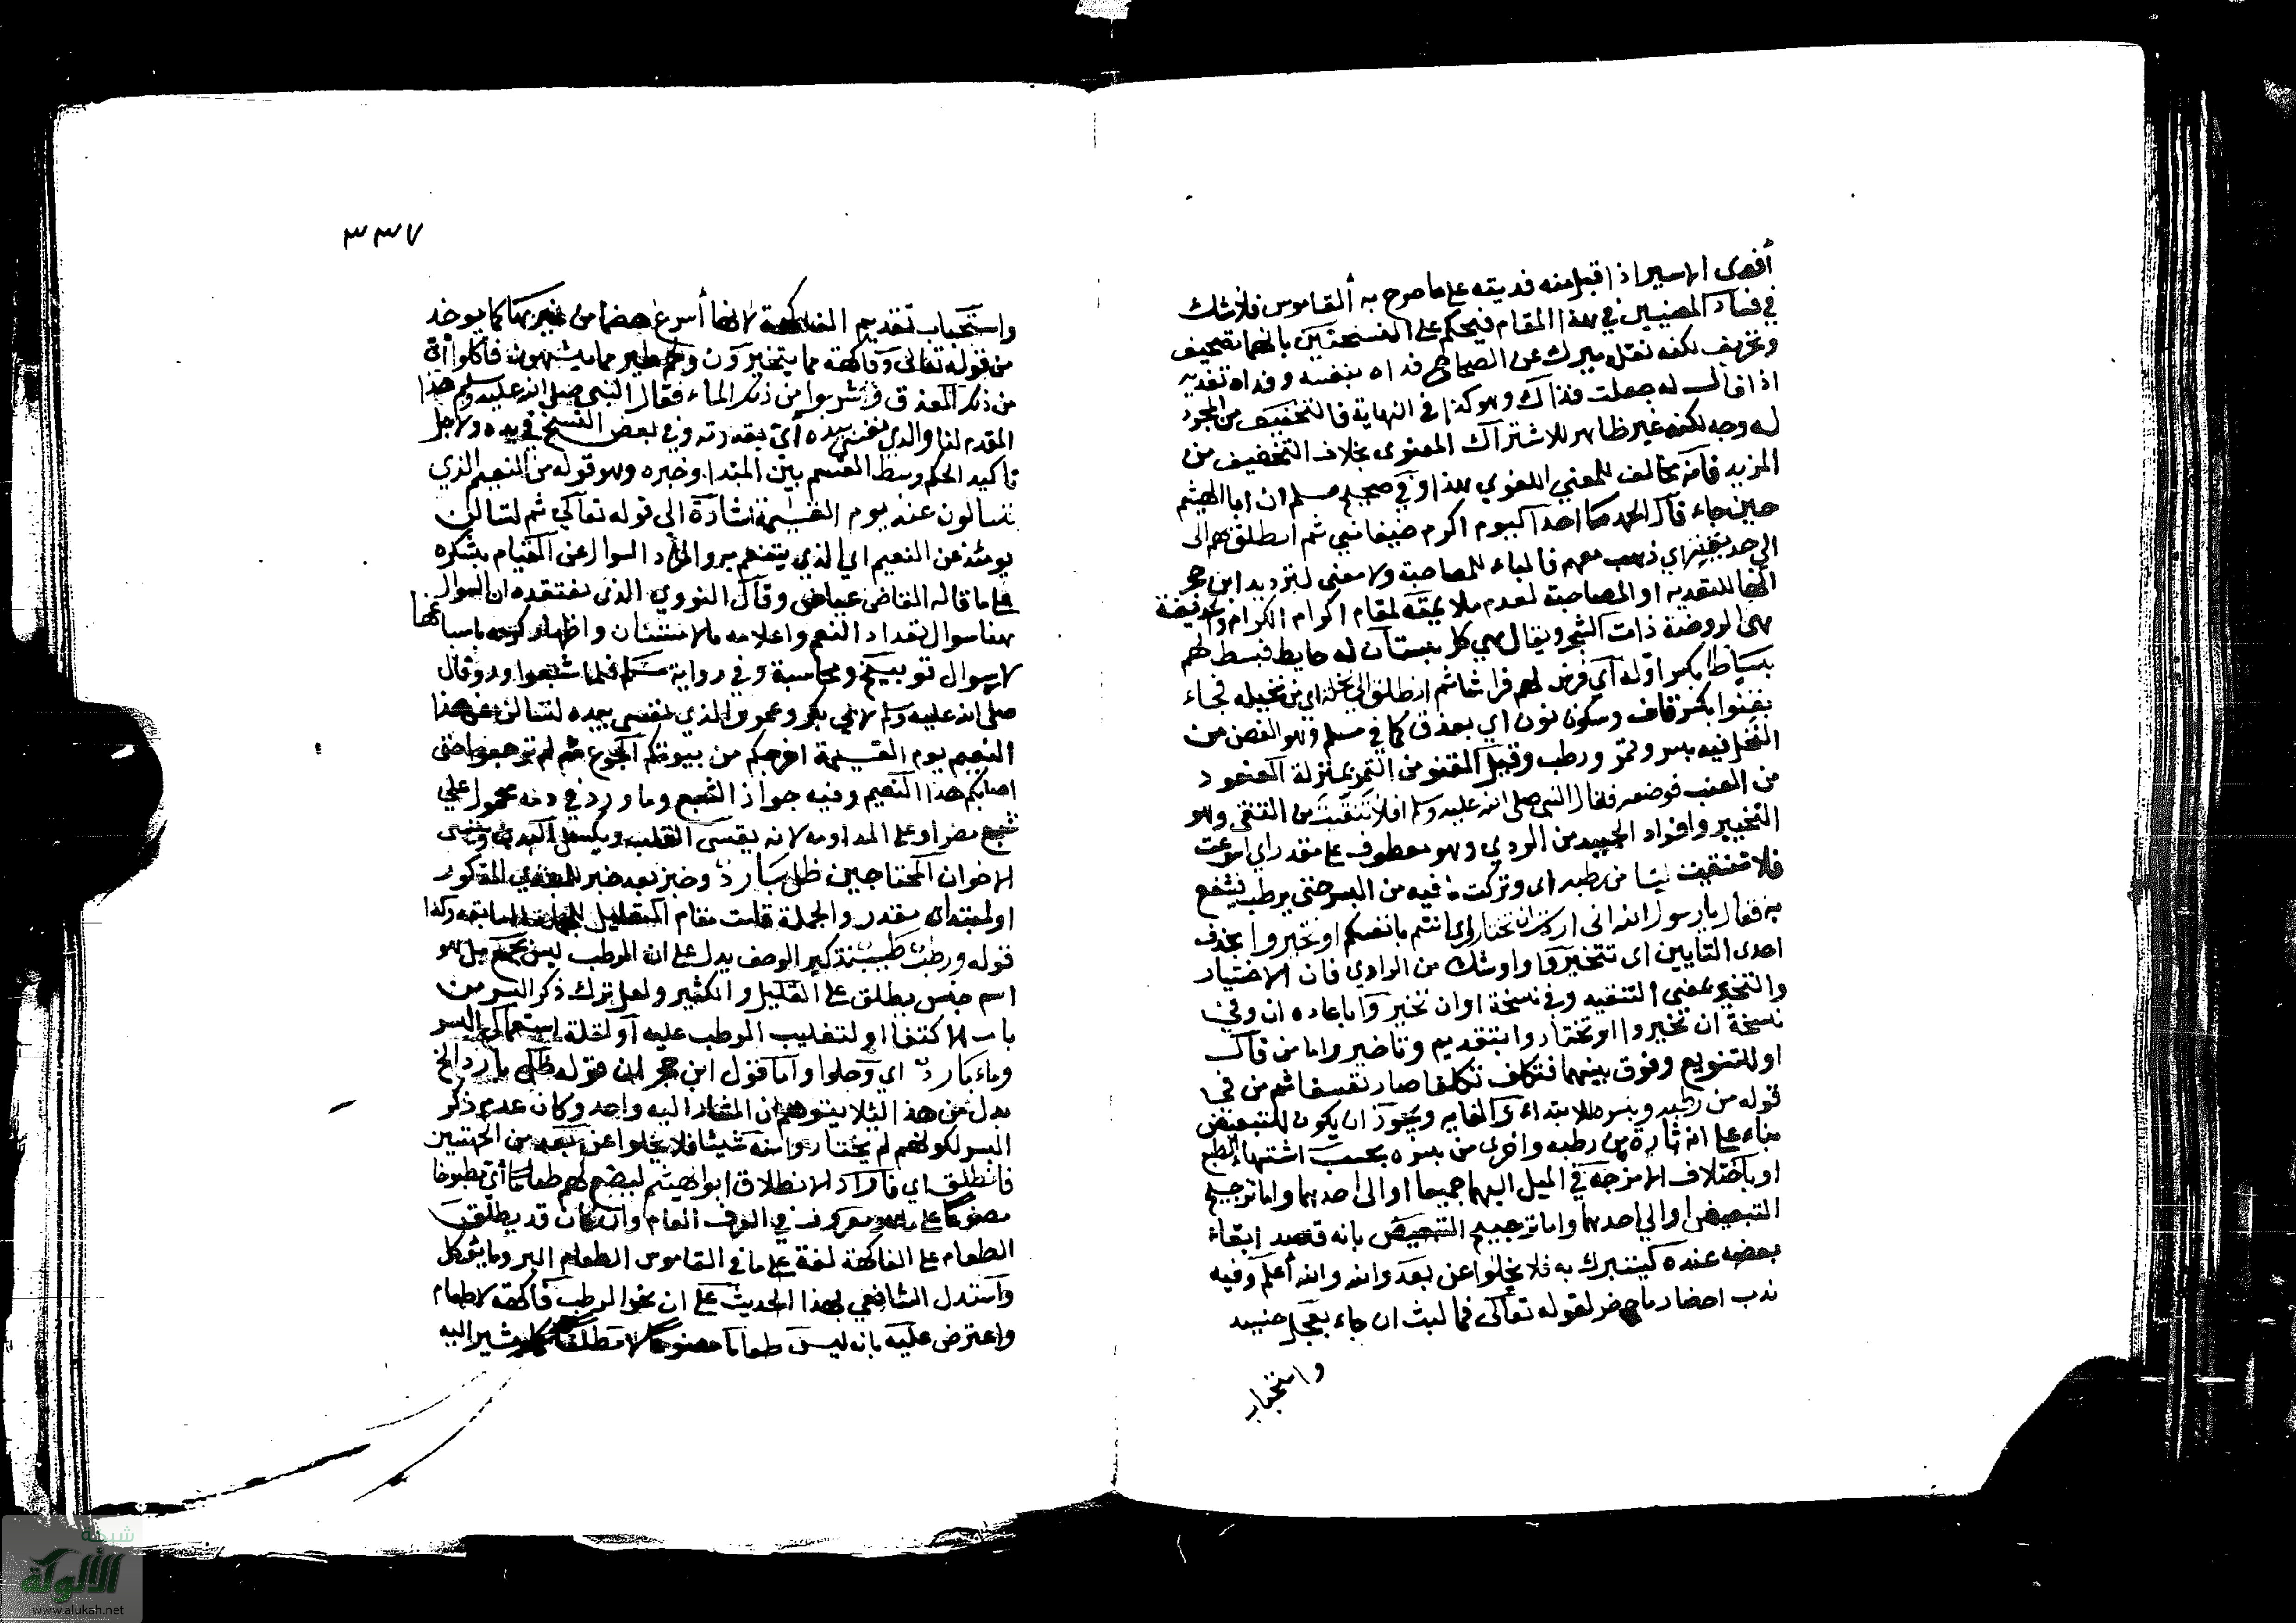 أفدى الاسير اذا قبل منه فديته على ما صرح به القاموس فلا شك
في فساد المعنيين في هذا المقام فيحكم على النسختين بانهما تصحيف
وتحريف لكنه نقل ميرك عن الصحاح فداه بنفسه وفداه تفدية
اذا قال له جعلت فداك وهو كذا في النهاية فالتخفيف من المجرد
له وجه لكنه غير ظاهر للاشتراك المعنوى بخلاف التخفيف من
المزيد فانه مخالف للمعني اللغوي هذا وفي صحيح مسلم ان ابا الهيثم
حين جاء قال الحمد لله ما احد اليوم اكرم ضيفا مني ثم انطلق بهم الى
الى حديقته اي ذهب معهم فالباء للمصاحبة ولا معنى لترديد ابن حجر
انها للتعدية او المصاحبة لعدم ملايمته لمقام اكرام الكرام والحديقة
هى الروضة ذات الشجر ويقال هي كل بستان له حايط فبسط لهم
بساطا بكسر اوله أي فرش لهم فراشا ثم انطلق الى نخلة اي من نخيله فجاء
بقنوا بكسر قاف وسكون نون اي بعذق كما في مسلم وهو الغصن من
النخل فيه بسر وتمر ورطب وقيل القنو من التمر بمنزلة العنقود
من العنب فوضعه فقال النبي صلى الله عليه وسلم افلا تنقيت من التنقي وهو
التخيير وافراد الجيد من الردي وهو معطوف على مقدر اي اسرعت
فلا تنقيت لنا من رطبه اى وتركت ما فيه من البسر حتى يرطب فينتفع
به فقال يا رسول الله انى اردت ان تختاروا اي انتم بانفسكم او تخيروا بحذف
احدى التايين اى تتخيروا واو شك من الراوي فان الاختيار
والتخير بمعنى التنقيه وفي نسخة او ان تخيروا باعاده ان وفي
نسخة ان تخيروا او تختاروا بتقديم وتاخير واما من قال
او للتنويع وفرق بينهما فتكلف تكلفا صار تعسفا ثم من في
قوله من رطبه وبسره للابتداء والغايه ويجوز ان يكون للتبعيض
بناء على انه تارة من رطبه واخرى من بسره بحسب اشتهاء الطبع
او باختلاف الامزجة في الميل اليهما جميعا او الى احدهما واما ترجيح
التبعيض او الى احدهما واما ترجيح التبعيض بانه قصد ابقاء
بعضه عنده كيتبرك به فلا يخلوا عن بعد والله والله أعلم وفيه
ندب احضار ما حضر لقوله تعالى فما لبث ان جاء بعجل حنيد
واستحباب
٣٣٧
واستحباب تقديم الفاكهة لانها أسرع هضما من غيرها كما يوخد
من قوله تعالى وفاكهة مما يتخيرون ولحم طير مما يشتهون فاكلوا أي
من ذلك العذق وشربوا من ذلك الماء فقال النبي صلى الله عليه وسلم هذا
المقدم لنا والذي نفسي بيده أي بقدرته وفي بعض النسخ في يده ولاجل
تاكيد الحكم وسط القسم بين المبتدا وخبره وهو قوله من النعيم الذي
تسالون عنه يوم القيمة اشارة الى قوله تعالى ثم لتسالن
يومئذ عن النعيم اي الذي يتنعم به والمراد السوال عن القيام بشكره
على ما قاله القاضى عياض وقال النووي الذى نعتقده ان السوال
هنا سوال تعداد النعم واعلامه بالامتنان واظهار كرمه باسباغها
لا سوال توبيخ ومحاسبة وفي رواية مسلم فلما شبعوا ورووا قال
صلى الله عليه وسلم لابي بكر وعمر والذي نفسى بيده لتسالن عن هذا
النعيم يوم القيمة اخرجكم من بيوتكم الجوع ثم لم ترجعوا حتى
اصابكم هذا النعيم وفيه جواز الشبع وما ورد في ذمه محمول علي
شبع مضر او على المداومه لانه يقسى القلب ويكسل البدن وينسى
الاخوان المحتاجين ظل بارد وخبز بعد خبر للمبتدي المذكور
او لمبتداء مقدر والجملة قامت مقام التعليل للجملة السابقه وكذا
قوله ورطب طيب تذكير الوصف يدل على ان الرطب ليس بجمع بل هو
اسم جنس يطلق على القليل والكثير ولعل ترك ذكر البسر من
باب الاكتفا او لتغليب الرطب عليه او لقلة استعمال البسر
وماء بارد اي وحلوا واما قول ابن حجر ان قوله ظل بارد الخ
بدل من هذا لئلا يتوهم ان المشار اليه واحد وكان عدم ذكر
البسر لكونهم لم يختاروا منه شيئا فلا يخلوا عن بعد من الجهتين
فانطلق اي فاراد الانطلاق ابو الهيثم ليصنع لهم طعاما أي مطبوخا
مصنوعا على ما هو معروف في العرف العام وان كان قد يطلق
الطعام على الفاكهة لغة على ما في القاموس الطعام البر وما يؤكل
واستدل الشافعي بهذا الحديث على ان نحو الرطب فاكهة لا طعام
واعترض عليه بانه ليس طعاما مصنوعا لا مطلقا كما يشير اليه
شبكة
الألوكة
www.alukah.net